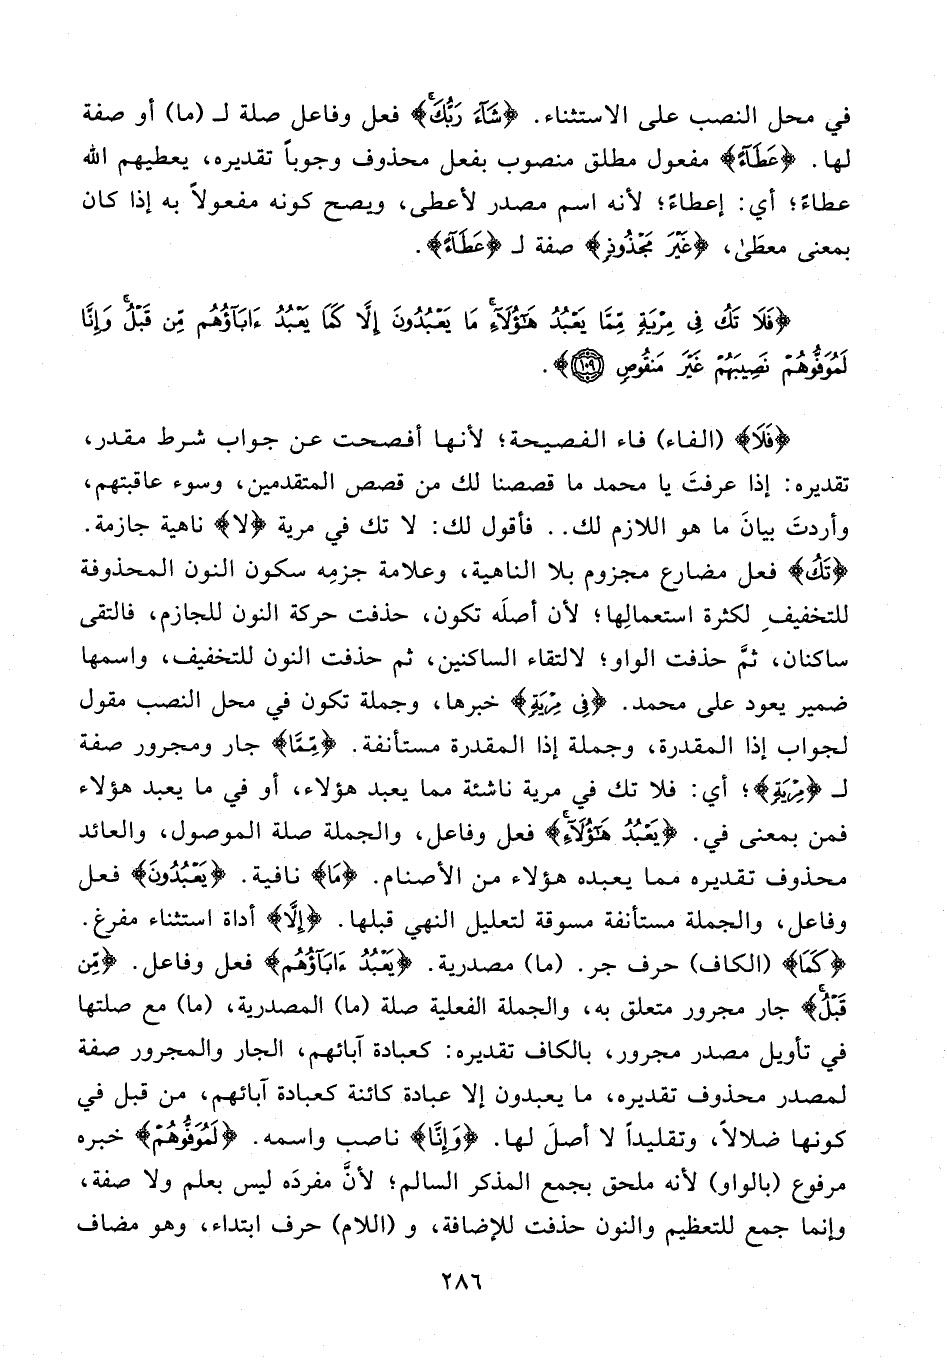 في محل النصب على الاستثناء. ﴿شَآءَ رَبُّكَۚ﴾ فعل وفاعل صلة لـ (ما) أو صفة
لها. ﴿عَطَآءً﴾ مفعول مطلق منصوب بفعل محذوف وجوباً تقديره، يعطيهم الله
عطاءً؛ أي: إعطاءً؛ لأنه اسم مصدر لأعطى، ويصح كونه مفعولاً به إذا كان
بمعنى معطَى، ﴿غَيْرَ مَجْذُوذٍ﴾ صفة لـ ﴿عَطَآءً﴾.
﴿فَلَا تَكُ فِى مِرْيَةٍ مِّمَّا يَعْبُدُ هَٰٓؤُلَآءِۚ مَا يَعْبُدُونَ إِلَّا كَمَا يَعْبُدُ ءَابَآؤُهُم مِّن قَبْلُۚ وَإِنَّا
لَمُوَفُّوهُمْ نَصِيبَهُمْ غَيْرَ مَنقُوصٍ ١٠٩﴾.
﴿فَلَا﴾ (الفاء) فاء الفصيحة؛ لأنها أفصحت عن جواب شرط مقدر،
تقديره: إذا عرفتَ يا محمد ما قصصنا لك من قصص المتقدمين، وسوء عاقبتهم،
وأردتَ بيانَ ما هو اللازم لك.. فأقول لك: لا تك في مرية ﴿لا﴾ ناهية جازمة.
﴿تَكُ﴾ فعل مضارع مجزوم بلا الناهية، وعلامة جزمِه سكون النون المحذوفة
للتخفيفِ لكثرة استعمالِها؛ لأن أصلَه تكون، حذفت حركة النون للجازم، فالتقى
ساكنان، ثمَّ حذفت الواو؛ لالتقاء الساكنين، ثم حذفت النون للتخفيف، واسمها
ضمير يعود على محمد. ﴿فِى مِرْيَةٍ﴾ خبرها، وجملة تكون في محل النصب مقول
لجواب إذا المقدرة، وجملة إذا المقدرة مستأنفة. ﴿مِّمَّا﴾ جار ومجرور صفة
لـ ﴿مِرْيَةٍ﴾؛ أي: فلا تك في مرية ناشئة مما يعبد هؤلاء، أو في ما يعبد هؤلاء
فمن بمعنى في. ﴿يَعْبُدُ هَٰٓؤُلَآءِۚ﴾ فعل وفاعل، والجملة صلة الموصول، والعائد
محذوف تقديره مما يعبده هؤلاء من الأصنام. ﴿مَا﴾ نافية. ﴿يَعْبُدُونَ﴾ فعل
وفاعل، والجملة مستأنفة مسوقة لتعليل النهي قبلها. ﴿إِلَّا﴾ أداة استثناء مفرغ.
﴿كَمَا﴾ (الكاف) حرف جر. (ما) مصدرية. ﴿يَعْبُدُ ءَابَآؤُهُم﴾ فعل وفاعل. ﴿مِّن
قَبْلُۚ﴾ جار مجرور متعلق به، والجملة الفعلية صلة (ما) المصدرية، (ما) مع صلتها
في تأويل مصدر مجرور، بالكاف تقديره: كعبادة آبائهم، الجار والمجرور صفة
لمصدر محذوف تقديره، ما يعبدون إلا عبادة كائنة كعبادة آبائهم، من قبل في
كونها ضلالاً، وتقليداً لا أصلَ لها. ﴿وَإِنَّا﴾ ناصب واسمه. ﴿لَمُوَفُّوهُمْ﴾ خبره
مرفوع (بالواو) لأنه ملحق بجمع المذكر السالم؛ لأنَّ مفردَه ليس بعلم ولا صفة،
وإنما جمع للتعظيم والنون حذفت للإضافة، و (اللام) حرف ابتداء، وهو مضاف
٢٨٦